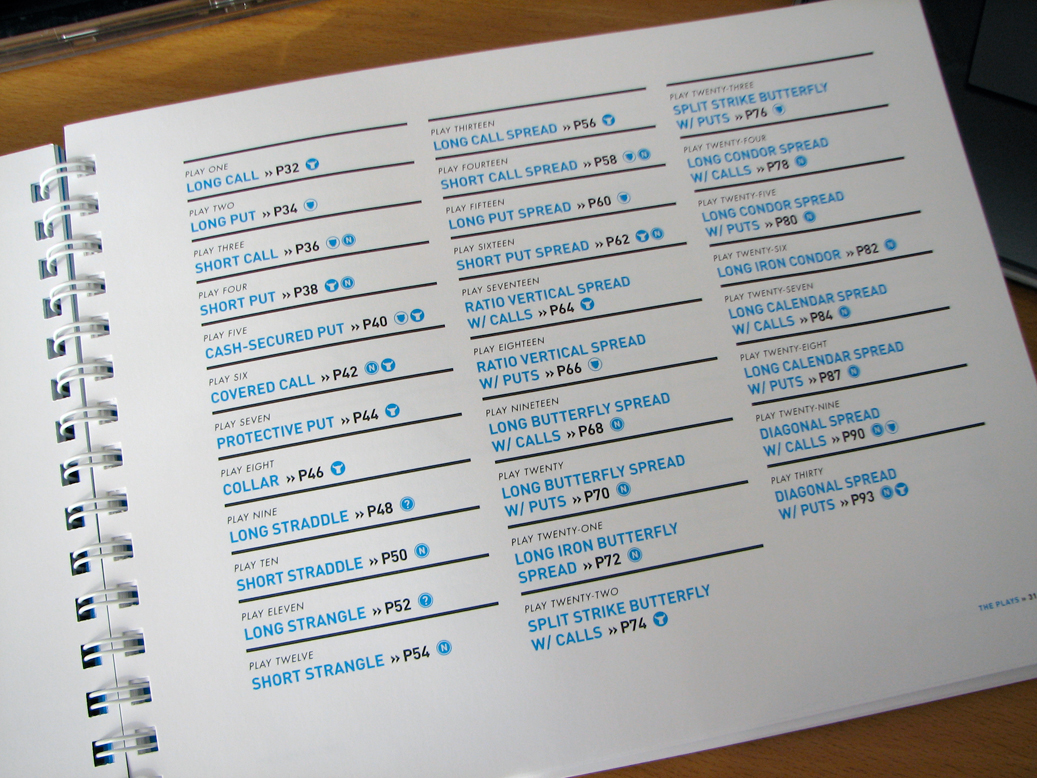 PLAY ONE
LONG CALL » P32
PLAY TWO
LONG PUT » P34
PLAY THREE
SHORT CALL » P36 N
PLAY FOUR
SHORT PUT » P38 N
PLAY FIVE
CASH-SECURED PUT » P40
PLAY SIX
COVERED CALL » P42 N
PLAY SEVEN
PROTECTIVE PUT » P44
PLAY EIGHT
COLLAR » P46
PLAY NINE
LONG STRADDLE » P48 ?
PLAY TEN
SHORT STRADDLE » P50 N
PLAY ELEVEN
LONG STRANGLE » P52 ?
PLAY TWELVE
SHORT STRANGLE » P54 N
PLAY THIRTEEN
LONG CALL SPREAD » P56
PLAY FOURTEEN
SHORT CALL SPREAD » P58 N
PLAY FIFTEEN
LONG PUT SPREAD » P60
PLAY SIXTEEN
SHORT PUT SPREAD » P62 N
PLAY SEVENTEEN
RATIO VERTICAL SPREAD
W/ CALLS » P64
PLAY EIGHTEEN
RATIO VERTICAL SPREAD
W/ PUTS » P66
PLAY NINETEEN
LONG BUTTERFLY SPREAD
W/ CALLS » P68 N
PLAY TWENTY
LONG BUTTERFLY SPREAD
W/ PUTS » P70 N
PLAY TWENTY-ONE
LONG IRON BUTTERFLY
SPREAD » P72 N
PLAY TWENTY-TWO
SPLIT STRIKE BUTTERFLY
W/ CALLS » P74
PLAY TWENTY-THREE
SPLIT STRIKE BUTTERFLY
W/ PUTS » P76
PLAY TWENTY-FOUR
LONG CONDOR SPREAD
W/ CALLS » P78 N
PLAY TWENTY-FIVE
LONG CONDOR SPREAD
W/ PUTS » P80 N
PLAY TWENTY-SIX
LONG IRON CONDOR » P82 N
PLAY TWENTY-SEVEN
LONG CALENDAR SPREAD
W/ CALLS » P84 N
PLAY TWENTY-EIGHT
LONG CALENDAR SPREAD
W/ PUTS » P87 N
PLAY TWENTY-NINE
DIAGONAL SPREAD
W/ CALLS » P90 N
PLAY THIRTY
DIAGONAL SPREAD
W/ PUTS » P93 N
THE PLAYS » 31